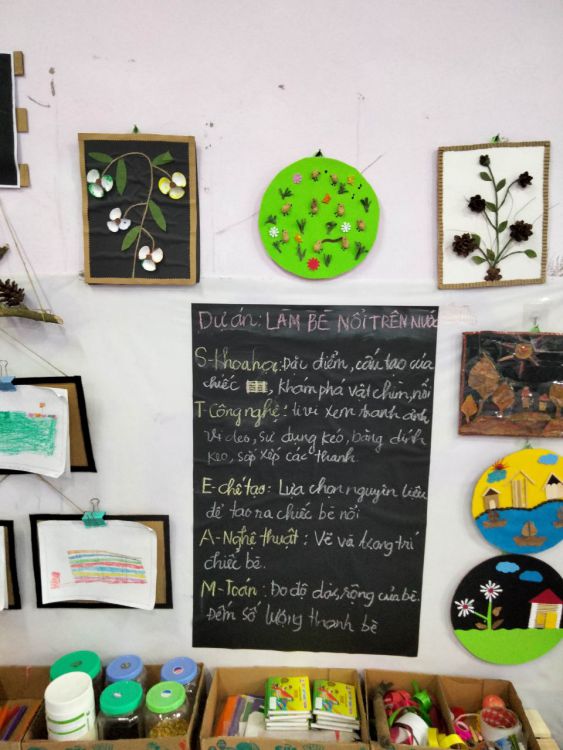 Dự án: LÀM BÈ NỔI TRÊN NƯỚC
S-Khoa học: Đặc điểm, cấu tạo của
chiếc , khám phá vật chìm, nổi
T-Công nghệ: ti vi xem tranh ảnh
video, sử dụng kéo, băng dính
keo, sắp xếp các thanh
E-chế tạo: Lựa chọn nguyên liệu
để tạo ra chiếc bè nổi
A-Nghệ thuật: Vẽ và trang trí
chiếc bè.
M-Toán: Đo độ dài, rộng của bè.
Đếm số lượng thanh bè